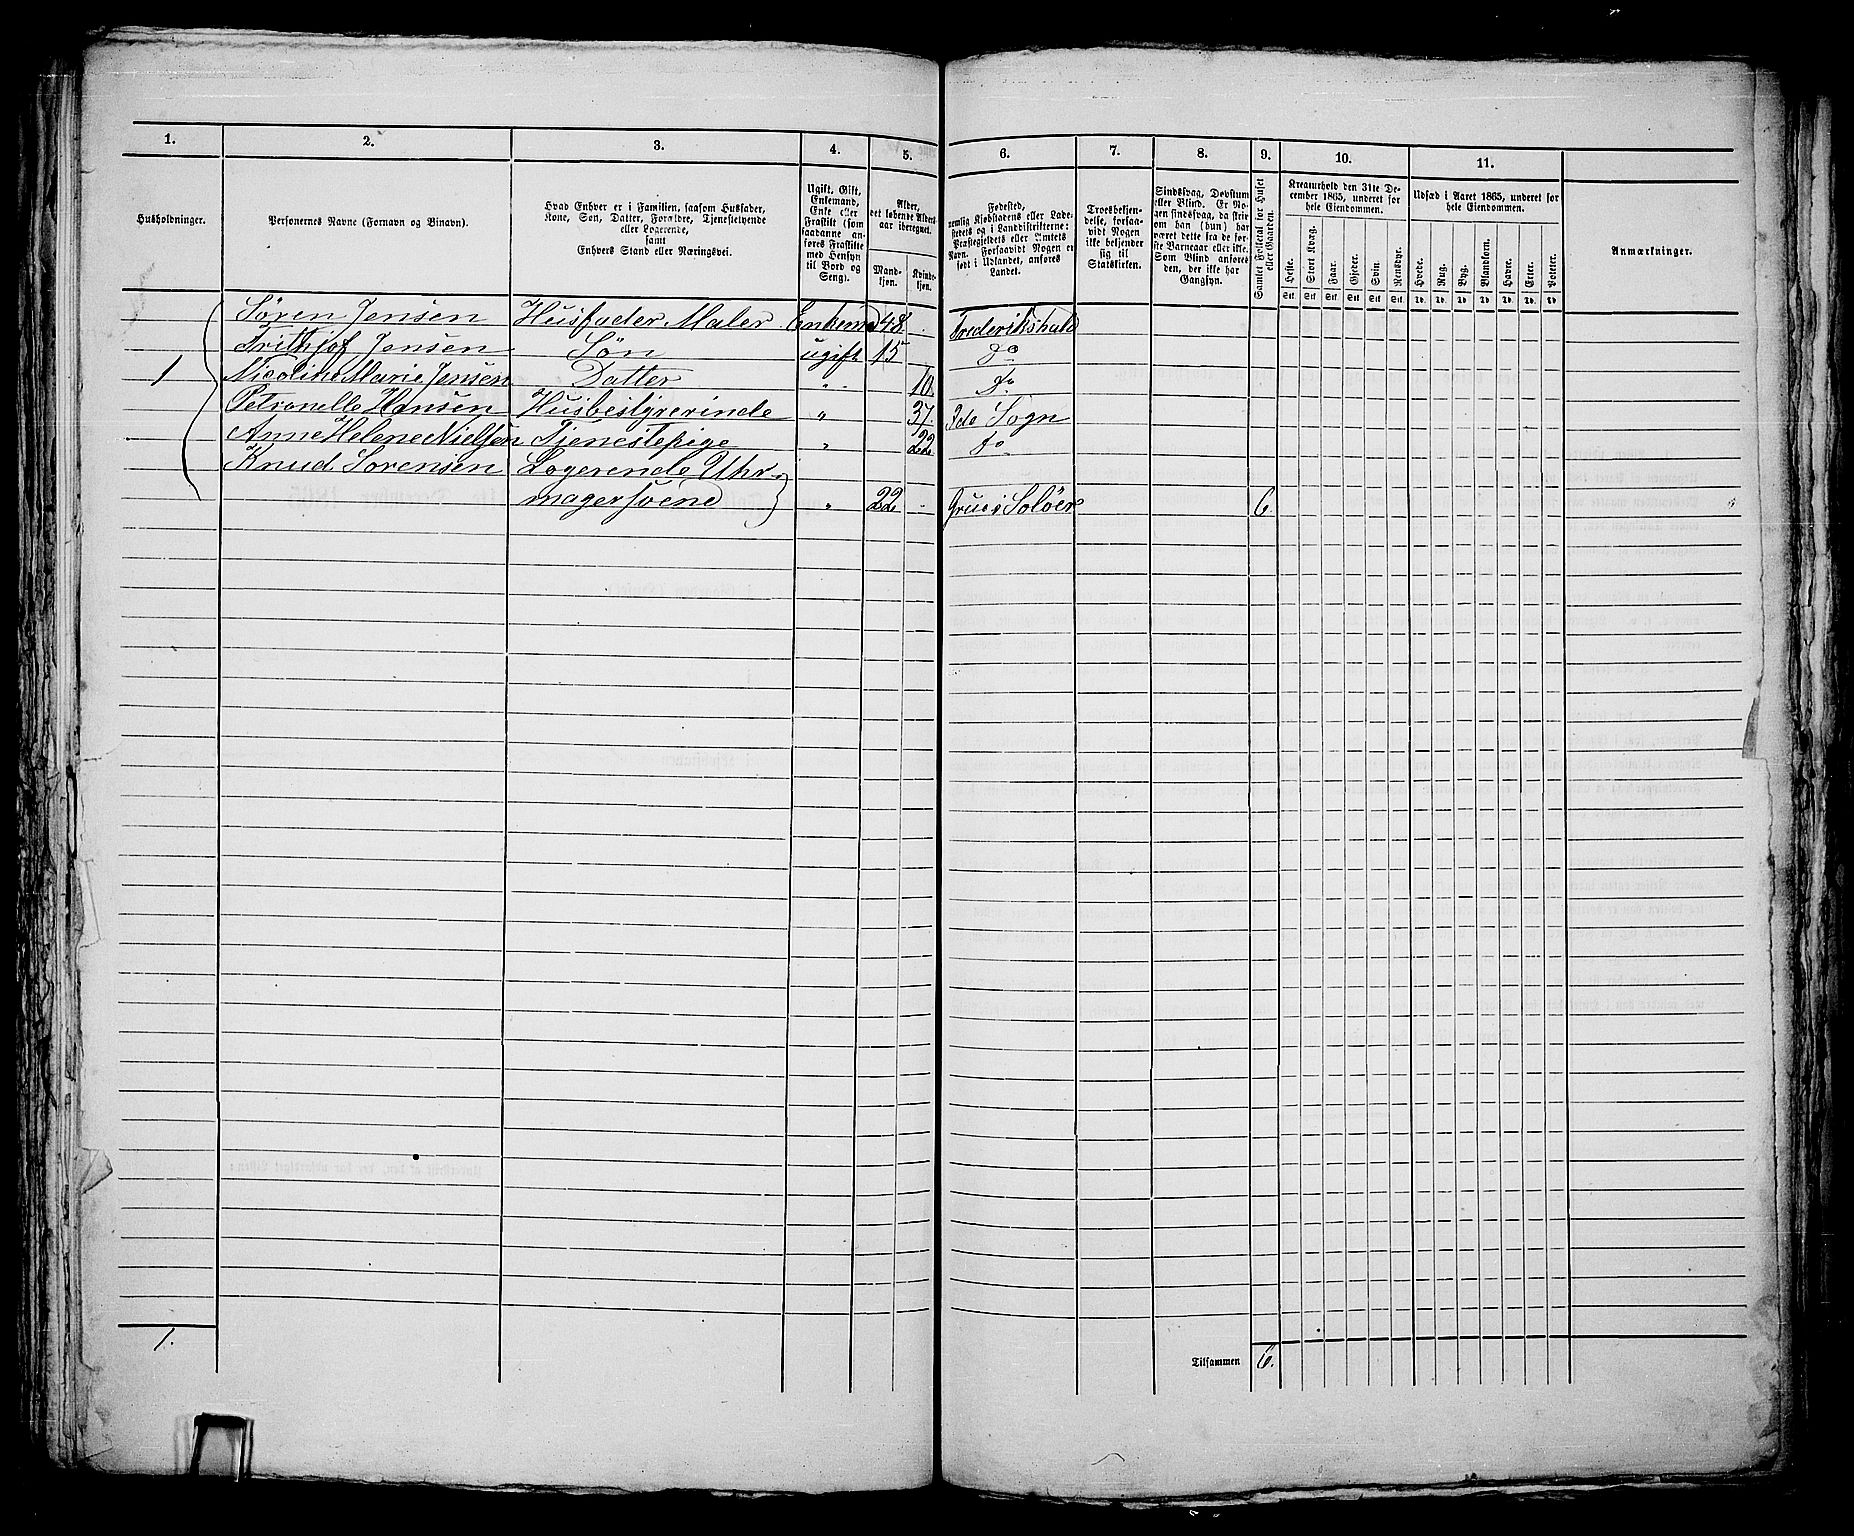 1. 2. 3. 4. 5. 6. 7. 8. 9. 10. 11.
Husholdninger.
Personernes Navne (Fornavn og Binavn).
Hvad Enhver er i Familien, saasom Husfader,
Kone, Søn, Datter, Forældre, Tjenestetyende
eller Logerende,
samt
Enhvers Stand eller Næringsvei.
Ugift, Gift,
Enkemand,
Enke eller
Fraskilt (som
saadanne an-
føres Fraskilte
med Hensyn
til Bord og
Seng).
Alder,
det løbende Alders-
aar iberegnet.
Mand-
kjøn.
Kvinde-
kjøn.
Fødested,
nemlig Kjøbstadens eller Lade-
stedets og i Landdistrikterne:
Præstegjeldets eller Amtets
Navn. Forsaavidt Nogen er
født i Udlandet, anføres
Landet.
Troesbekjen-
delse, forsaa-
vidt Nogen
ikke bekjender
sig til
Statskirken.
Sindssvag, Døvstum
eller Blind. Er No-
gen sindssvag, da skrives
om han (hun) har
været dette fra de før-
ste Barneaar eller ei.
Som Blind anføres
den, der ikke har
Gangsyn.
Samlet Folketal for Huset
eller Gaarden.
Kreaturhold den 31te De-
cember 1865, underet for
hele Eiendommen.
Heste. Stort Kvæg. Faar. Gjeder. Svin. Rensdyr.
Stk. Stk. Stk. Stk. Stk. Stk.
Udsæd i Aaret 1865, underet for
hele Eiendommen.
Hvede. Rug. Byg. Blandkorn. Havre. Erter. Poteter.
Anmærkninger.
Søren Jensen Husfader Maler Enkemd 48. Frederikshald
Frithjof Jensen Søn ugift 15 Do
1 Nicoline Marie Jensen Datter " 10. Do
Petronelle Hansen Husbestyrerinde " 37. Ide Sogn
Anne Helene Nielsen Tjenestepige " 22 Do
Knud Sorensen Logerende Uhr-
magersvend " 22 Grue i Soløer 6.
1.
Tilsammen 6.